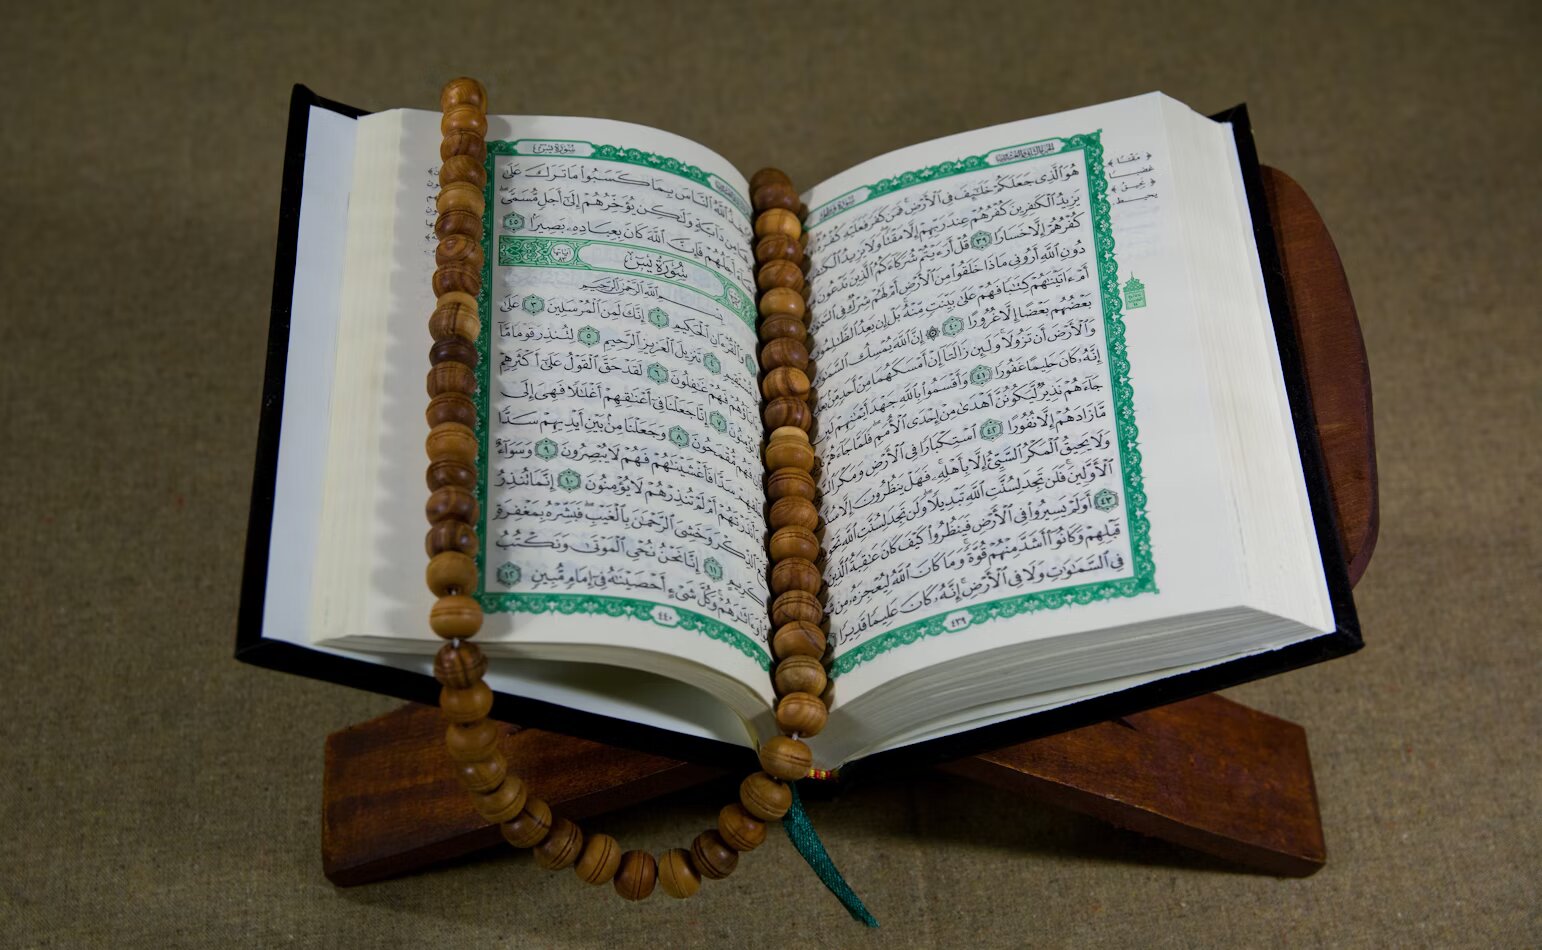 هُوَ ٱلَّذِى جَعَلَكُمْ خَلَـٰٓئِفَ فِى ٱلْأَرْضِ فَمَن كَفَرَ فَعَلَيْهِ كُفْرُهُۥ
يَزِيدُ ٱلْكَـٰفِرِينَ كُفْرُهُمْ عِندَ رَبِّهِمْ إِلَّا مَقْتًا وَلَا يَزِيدُ
كُفْرُهُمْ إِلَّا خَسَارًا ٣٩ قُلْ أَرَءَيْتُمْ شُرَكَآءَكُمُ ٱلَّذِينَ تَدْعُونَ
دُونِ ٱللَّهِ أَرُونِى مَاذَا خَلَقُوا۟ مِنَ ٱلْأَرْضِ أَمْ لَهُمْ شِرْكٌ فِى
أَمْ ءَاتَيْنَـٰهُمْ كِتَـٰبًا فَهُمْ عَلَىٰ بَيِّنَتٍ مِّنْهُ بَلْ إِن يَعِدُ ٱلظَّـٰلِمُونَ
بَعْضُهُم بَعْضًا إِلَّا غُرُورًا ٤٠ ۞ إِنَّ ٱللَّهَ يُمْسِكُ
وَٱلْأَرْضَ أَن تَزُولَا وَلَئِن زَالَتَآ إِنْ أَمْسَكَهُمَا مِنْ أَحَدٍ
إِنَّهُۥ كَانَ حَلِيمًا غَفُورًا ٤١ وَأَقْسَمُوا۟ بِٱللَّهِ جَهْدَ أَيْمَـٰنِهِمْ
جَآءَهُمْ نَذِيرٌ لَّيَكُونُنَّ أَهْدَىٰ مِنْ إِحْدَى ٱلْأُمَمِ فَلَمَّا
مَّا زَادَهُمْ إِلَّا نُفُورًا ٤٢ ٱسْتِكْبَارًا فِى ٱلْأَرْضِ وَمَكْرَ
وَلَا يَحِيقُ ٱلْمَكْرُ ٱلسَّيِّئُ إِلَّا بِأَهْلِهِۦ فَهَلْ يَنظُرُونَ إِلَّا
ٱلْأَوَّلِينَ فَلَن تَجِدَ لِسُنَّتِ ٱللَّهِ تَبْدِيلًا وَلَن تَجِدَ لِسُنَّتِ ٱللَّهِ
٤٣ أَوَلَمْ يَسِيرُوا۟ فِى ٱلْأَرْضِ فَيَنظُرُوا۟ كَيْفَ كَانَ عَـٰقِبَةُ
قَبْلِهِمْ وَكَانُوٓا۟ أَشَدَّ مِنْهُمْ قُوَّةً وَمَا كَانَ ٱللَّهُ لِيُعْجِزَهُۥ مِن
فِى ٱلسَّمَـٰوَٰتِ وَلَا فِى ٱلْأَرْضِ إِنَّهُۥ كَانَ عَلِيمًا قَدِيرًا
٤٣٩
ٱللَّهُ ٱلنَّاسَ بِمَا كَسَبُوا۟ مَا تَرَكَ عَلَىٰ
مِن دَآبَّةٍ وَلَـٰكِن يُؤَخِّرُهُمْ إِلَىٰٓ أَجَلٍ مُّسَمًّى
أَجَلُهُمْ فَإِنَّ ٱللَّهَ كَانَ بِعِبَادِهِۦ بَصِيرًۢا ٤٥
سُورَةُ يسٓ
بِسْمِ ٱللَّهِ ٱلرَّحْمَـٰنِ ٱلرَّحِيمِ
وَٱلْقُرْءَانِ ٱلْحَكِيمِ ٢ إِنَّكَ لَمِنَ ٱلْمُرْسَلِينَ ٣ عَلَىٰ
تَنزِيلَ ٱلْعَزِيزِ ٱلرَّحِيمِ ٥ لِتُنذِرَ قَوْمًا مَّآ
فَهُمْ غَـٰفِلُونَ ٦ لَقَدْ حَقَّ ٱلْقَوْلُ عَلَىٰٓ أَكْثَرِهِمْ
٧ إِنَّا جَعَلْنَا فِىٓ أَعْنَـٰقِهِمْ أَغْلَـٰلًا فَهِىَ إِلَى
مُّقْمَحُونَ ٨ وَجَعَلْنَا مِنۢ بَيْنِ أَيْدِيهِمْ سَدًّا
سَدًّا فَأَغْشَيْنَـٰهُمْ فَهُمْ لَا يُبْصِرُونَ ٩ وَسَوَآءٌ
ءَأَنذَرْتَهُمْ أَمْ لَمْ تُنذِرْهُمْ لَا يُؤْمِنُونَ ١٠ إِنَّمَا تُنذِرُ
ٱلذِّكْرَ وَخَشِىَ ٱلرَّحْمَـٰنَ بِٱلْغَيْبِ فَبَشِّرْهُ بِمَغْفِرَةٍ
١١ إِنَّا نَحْنُ نُحْىِ ٱلْمَوْتَىٰ وَنَكْتُبُ
وَءَاثَـٰرَهُمْ وَكُلَّ شَىْءٍ أَحْصَيْنَـٰهُ فِىٓ إِمَامٍ مُّبِينٍ ١٢
٤٤٠